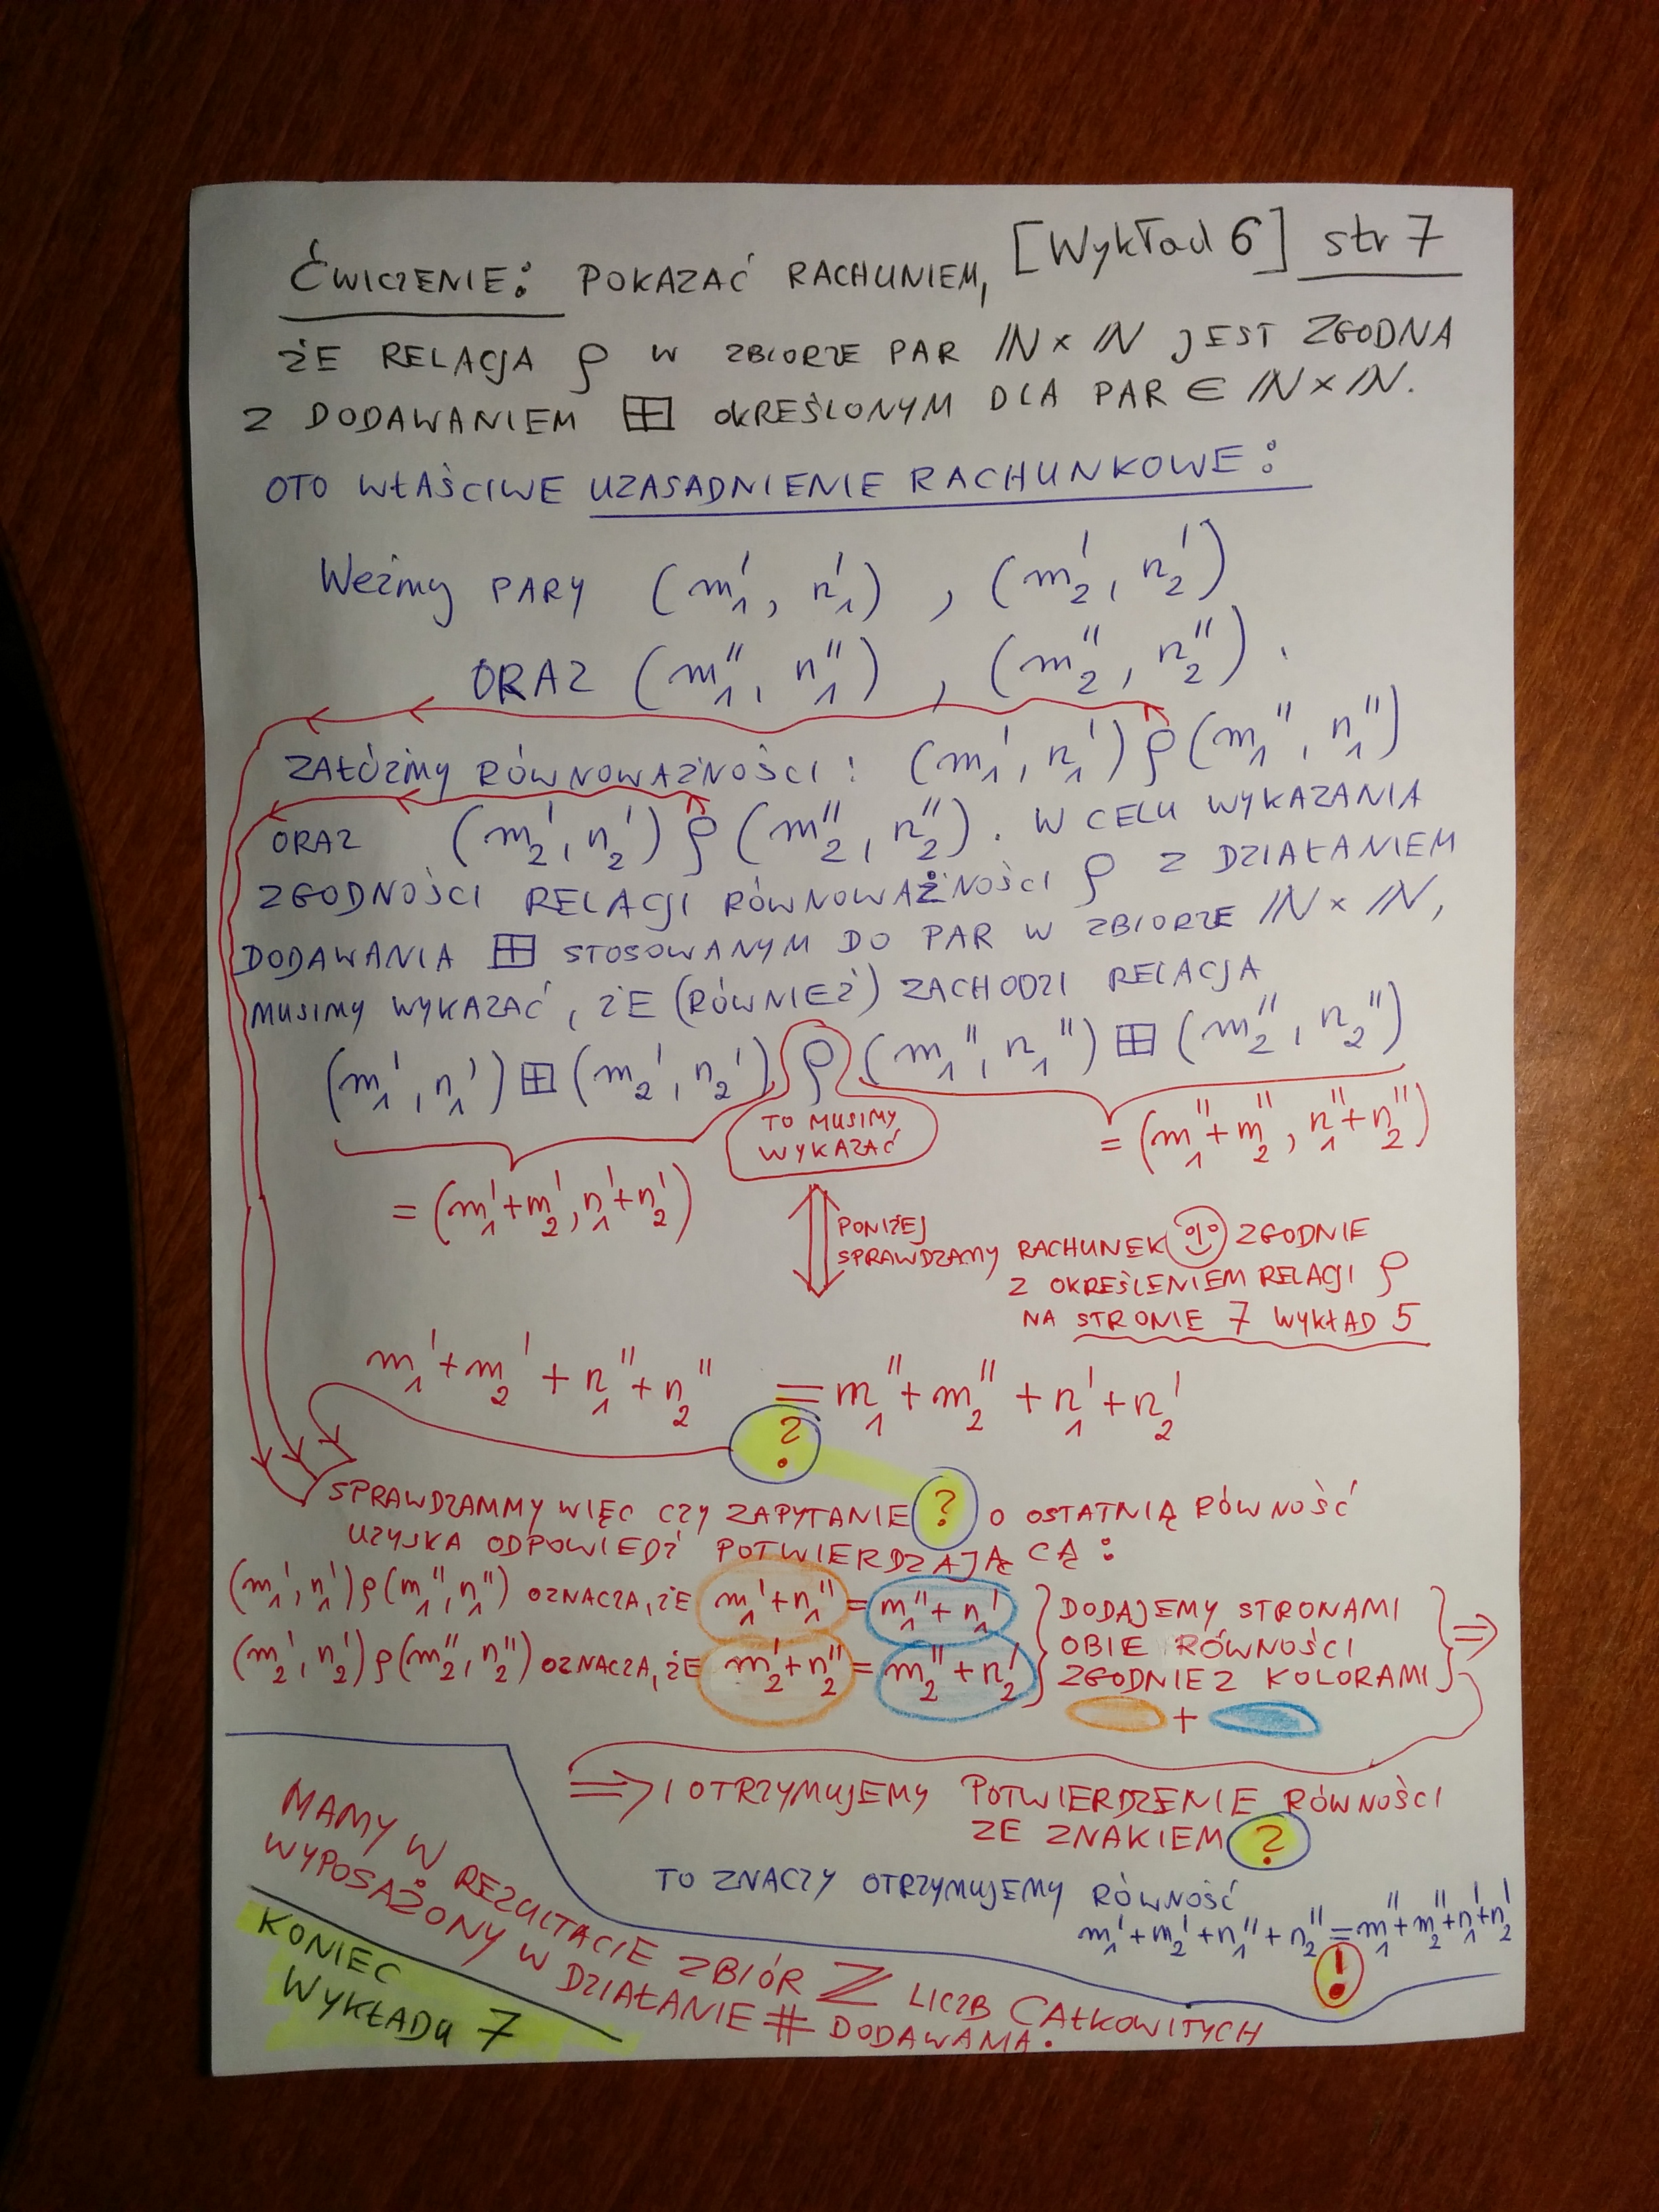 [Wykład 6] str 7
ĆWICZENIE: POKAZAĆ RACHUNIEM,
ŻE RELACJA ρ W ZBIORZE PAR ℕ×ℕ JEST ZGODNA
Z DODAWANIEM ⊞ OKREŚLONYM DLA PAR ∈ ℕ×ℕ.
OTO WŁAŚCIWE UZASADNIENIE RACHUNKOWE:
Weźmy PARY (m₁', n₁'), (m₂', n₂')
ORAZ (m₁'', n₁''), (m₂'', n₂'').
ZAŁÓŻMY RÓWNOWAŻNOŚCI: (m₁', n₁') ρ (m₁'', n₁'')
ORAZ (m₂', n₂') ρ (m₂'', n₂''). W CELU WYKAZANIA
ZGODNOŚCI RELACJI RÓWNOWAŻNOŚCI ρ Z DZIAŁANIEM
DODAWANIA ⊞ STOSOWANYM DO PAR W ZBIORZE ℕ×ℕ,
MUSIMY WYKAZAĆ, ŻE (RÓWNIEŻ) ZACHODZI RELACJA
(m₁', n₁') ⊞ (m₂', n₂') ρ (m₁'', n₁'') ⊞ (m₂'', n₂'')
TO MUSIMY
WYKAZAĆ
= (m₁''+m₂'', n₁''+n₂'')
= (m₁'+m₂', n₁'+n₂')
⇕ PONIŻEJ
SPRAWDZAMY RACHUNEK ☺ ZGODNIE
Z OKREŚLENIEM RELACJI ρ
NA STRONIE 7 WYKŁAD 5
m₁'+m₂'+n₁''+n₂'' = m₁''+m₂''+n₁'+n₂'
?
SPRAWDZAMMY WIĘC CZY ZAPYTANIE ? O OSTATNIĄ RÓWNOŚĆ
UZYSKA ODPOWIEDŹ POTWIERDZAJĄCĄ:
(m₁', n₁') ρ (m₁'', n₁'') OZNACZA, ŻE m₁'+n₁'' = m₁''+n₁' } DODAJEMY STRONAMI
OBIE RÓWNOŚCI } ⇒
(m₂', n₂') ρ (m₂'', n₂'') OZNACZA, ŻE m₂'+n₂'' = m₂''+n₂' } ZGODNIE Z KOLORAMI
+
⇒ I OTRZYMUJEMY POTWIERDZENIE RÓWNOŚCI
ZE ZNAKIEM ?
TO ZNACZY OTRZYMUJEMY RÓWNOŚĆ
m₁'+m₂'+n₁''+n₂'' = m₁''+m₂''+n₁'+n₂'
!
MAMY W REZULTACIE ZBIÓR ℤ LICZB CAŁKOWITYCH
WYPOSAŻONY W DZIAŁANIE # DODAWANIA.
KONIEC
WYKŁADU 7